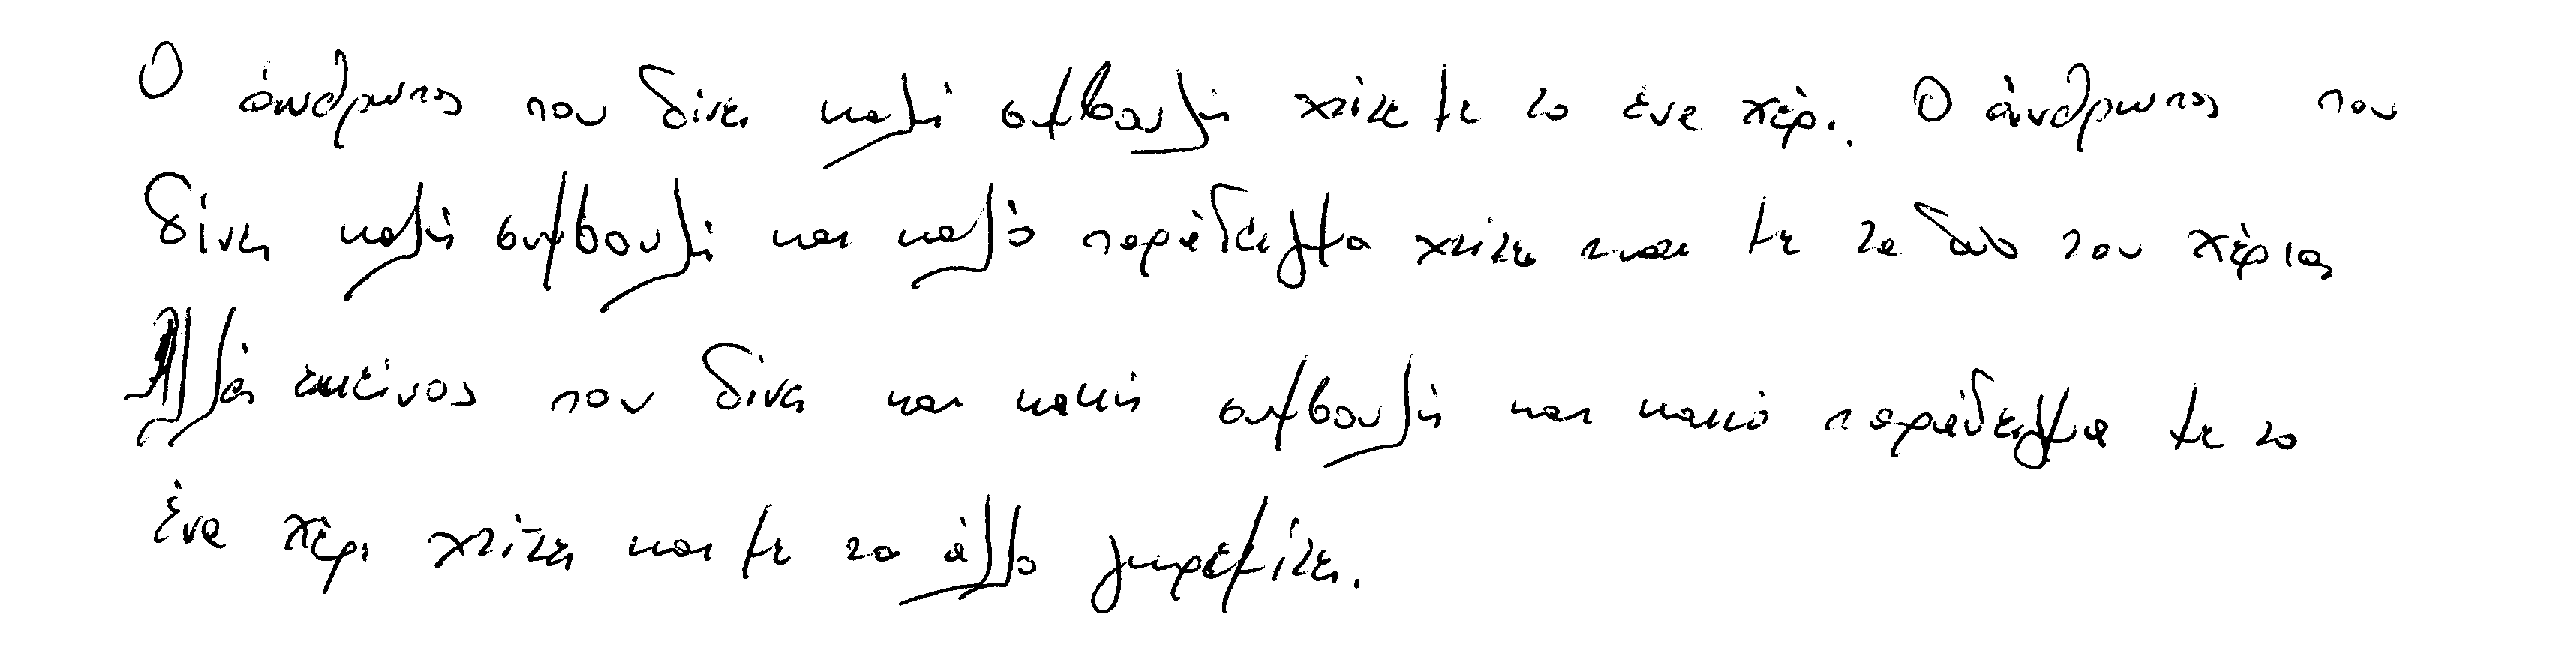 Ο άνθρωπος που δίνει καλή συμβουλή χτίζει με το ένα χέρι. Ο άνθρωπος που
δίνει καλή συμβουλή και καλό παράδειγμα χτίζει και με τα δυο του χέρια
Αλλά εκείνος που δίνει και κακή συμβουλή και κακό παράδειγμα με το
ένα χέρι χτίζει και με το άλλο γκρεμίζει.